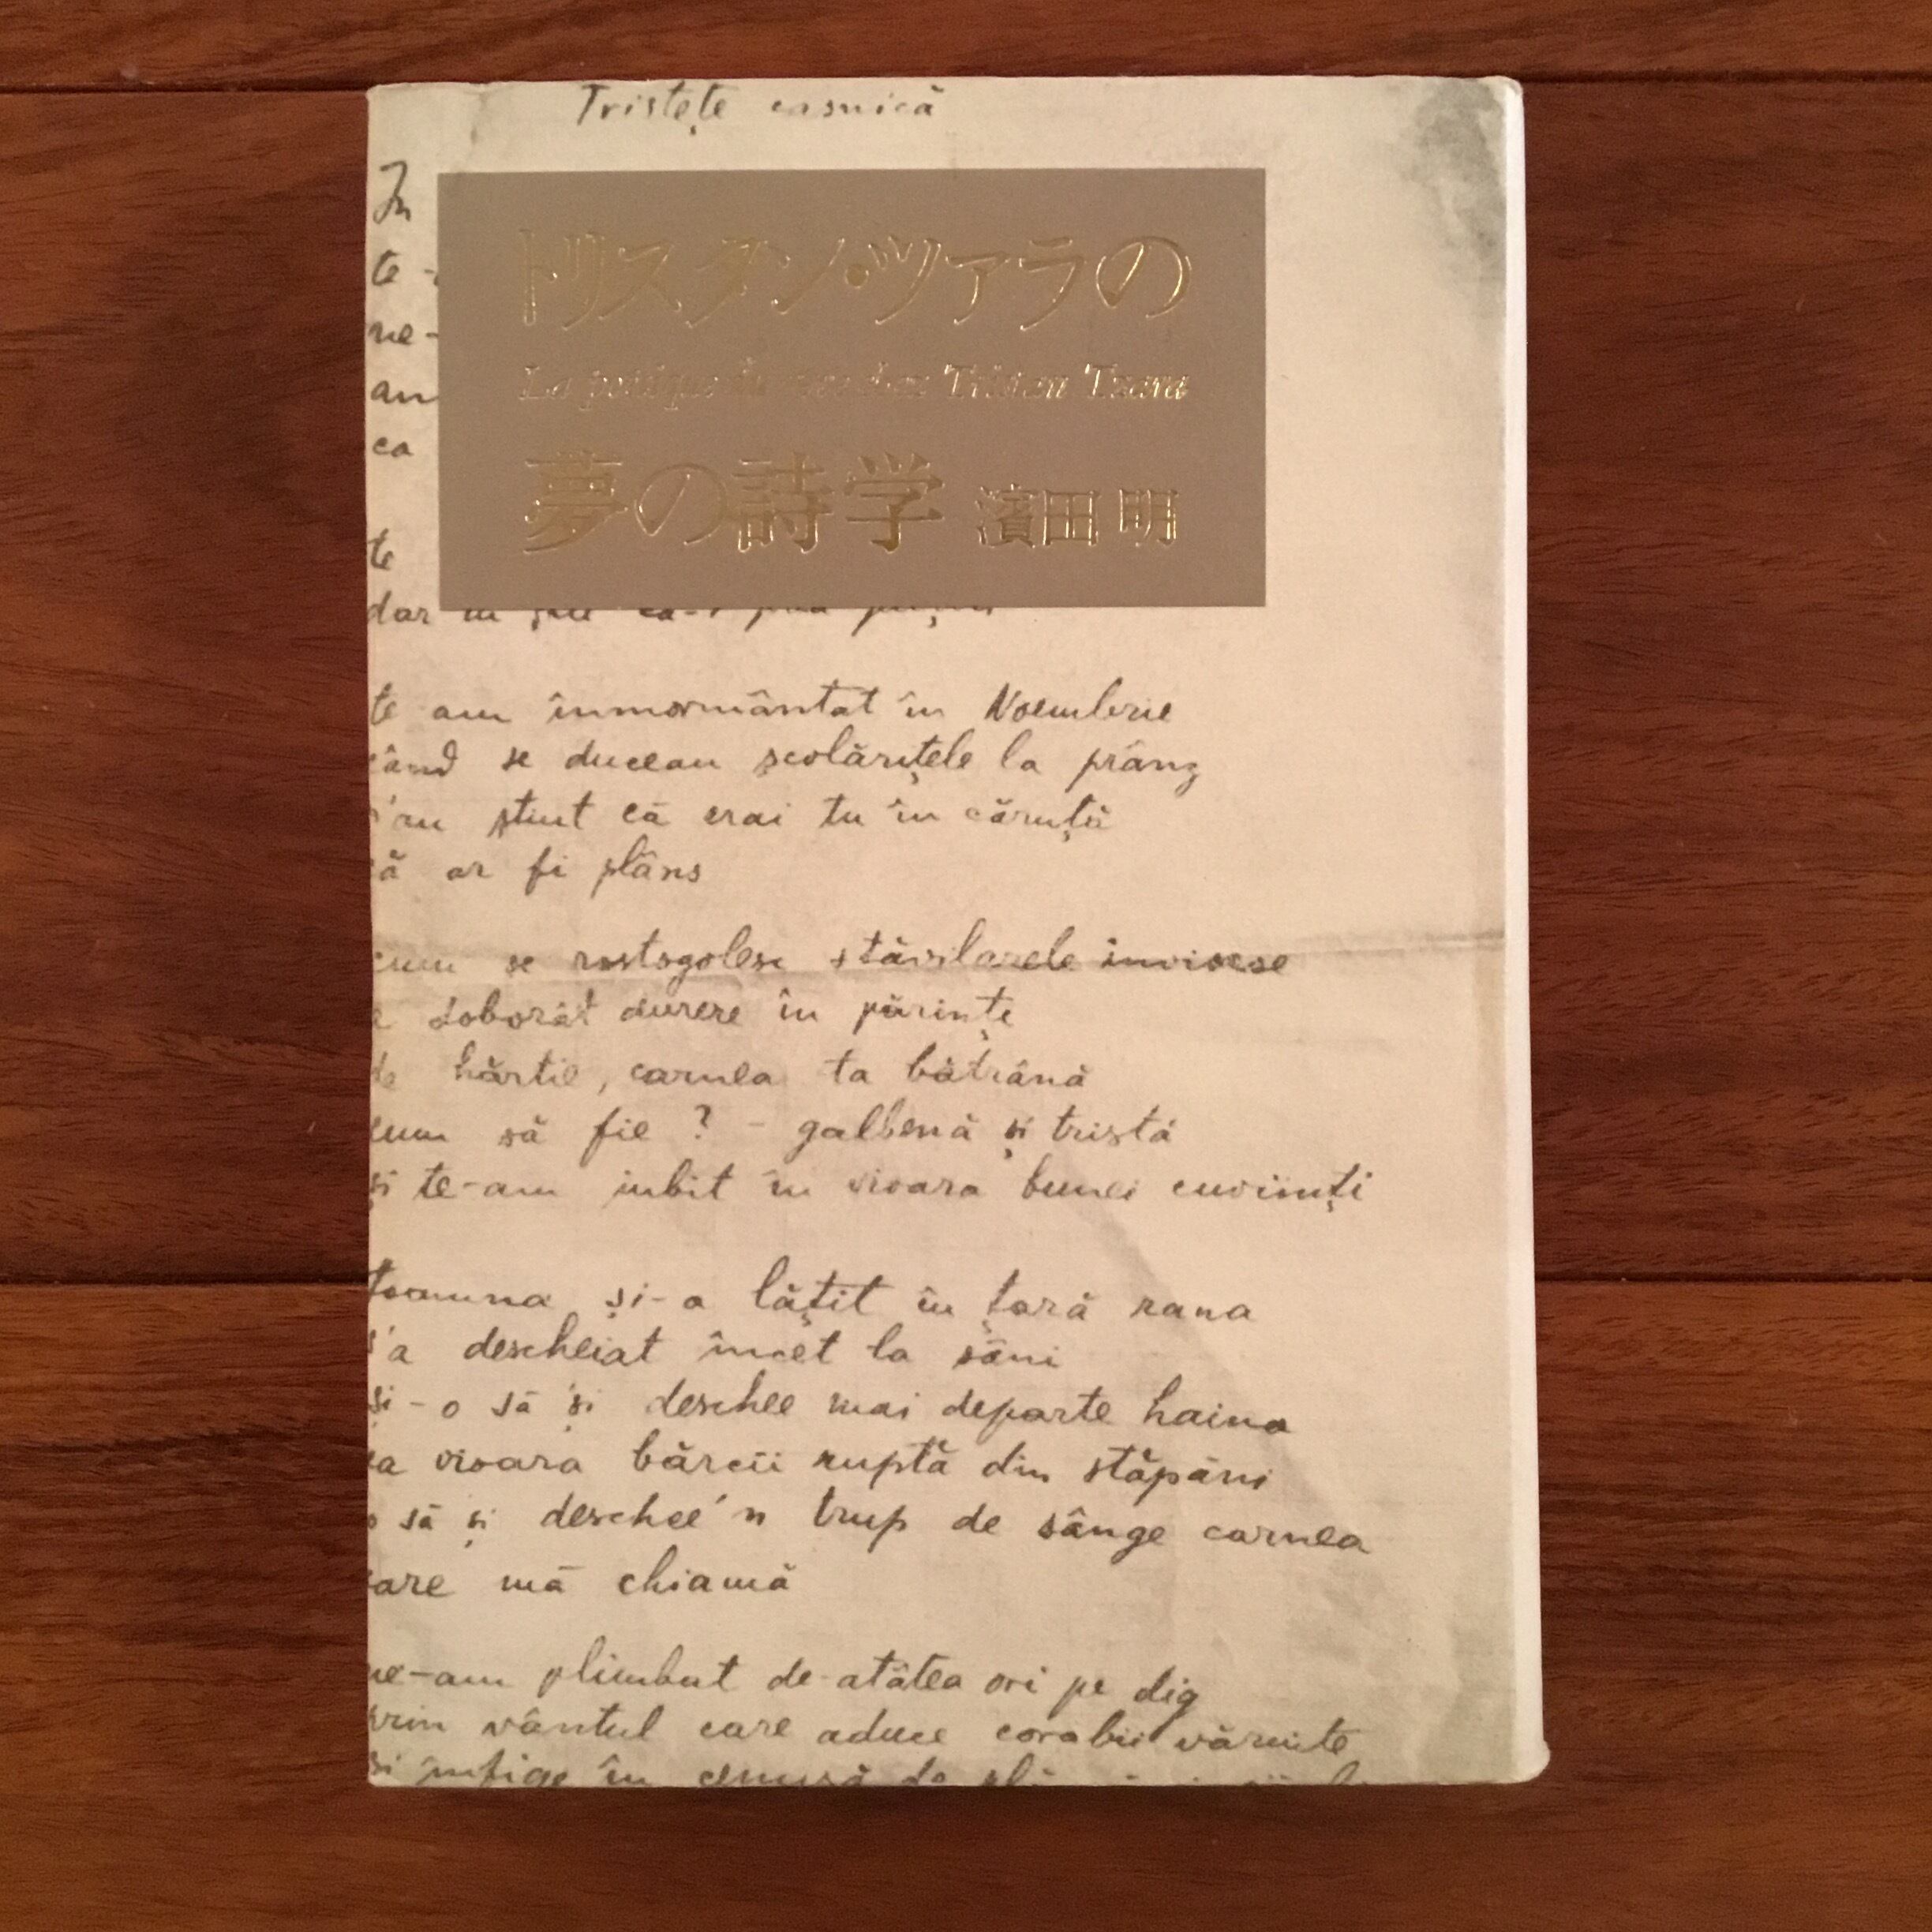 Tristețe casnică
In
te-
ne-
an
ca
te
dar
トリスタン・ツァラの
La poétique du rêve chez Tristan Tzara
夢の詩学 濱田明
te am înmormântat în Noembrie
când se duceau școlărițele la prânz
știut că erai tu în căruță
ar fi plâns
cum se rostogolesc stăvilarele învinse
doborât durere în părinte
de hârtie, carnea ta bătrână
cum să fie ? - galbenă și tristă
și te-am iubit în vioara bunei cuviinți
toamna și-a lățit în țară rana
s'a descheiat încet la sâni
și-o să și deschee mai departe haina
ca vioara bărcii ruptă din stăpâni
o să și deschee'n trup de sânge carnea
care mă chiamă
ne-am plimbat de-atâtea ori pe dig
prin vântul care aduce corabii
și înfige în